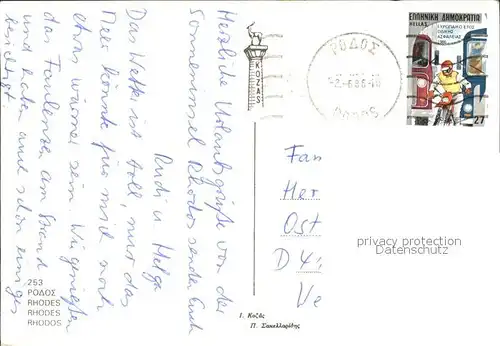 Herzliche Urlaubsgrüße von der
Sonneninsel Rhodos senden Euch
Rudi u. Helga
Das Wetter ist toll, nur das
Meer könnte für mich noch
etwas wärmer sein. Wir genießen
das Faulenzen am Strand
und haben auch schon einiges
besichtigt.
253
ΡΟΔΟΣ
RHODES
RHODES
RHODOS
KOZAS
Ι. Κοζάς
Π. Σακελλαρίδης
ΡΟΔΟΣ
RODOS
ΕΛΛΗΝΙΚΗ ΔΗΜΟΚΡΑΤΙΑ
HELLAS
ΕΥΡΩΠΑΪΚΟ ΕΤΟΣ
ΟΔΙΚΗΣ
ΑΣΦΑΛΕΙΑΣ
1986
27
Fam
Her
Ost
D 4
privacy protection
Datenschutz